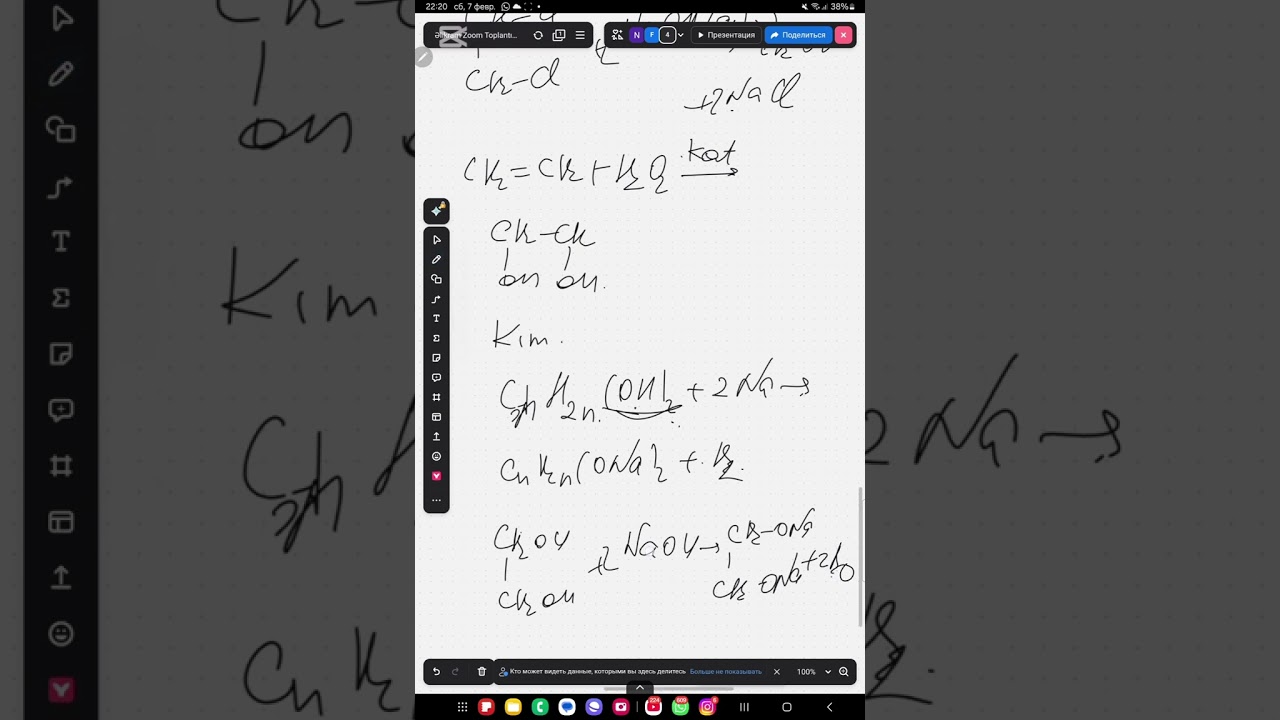 22:20 сб, 7 февр. 38%
Əlikram Zoom Toplantı...
N F 4 Презентация Поделиться
CH2-Cl
+2NaCl
CH2=CH2+H2O2 Kat →
CH2-CH2
OH OH.
Kim.
CnH2n(OH)2 + 2Na→
CnH2n(ONa)2 + H2
CH2OH
+2NaOH→
CH2-ONa
CH2OH
CH2ONa+2H2O
Кто может видеть данные, которыми вы здесь делитесь Больше не показывать
100%